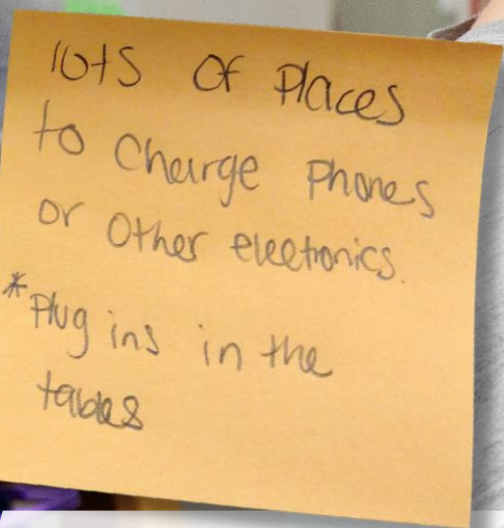 lots of Places
to Charge Phones
or Other electronics.
*Plug ins in the
tables